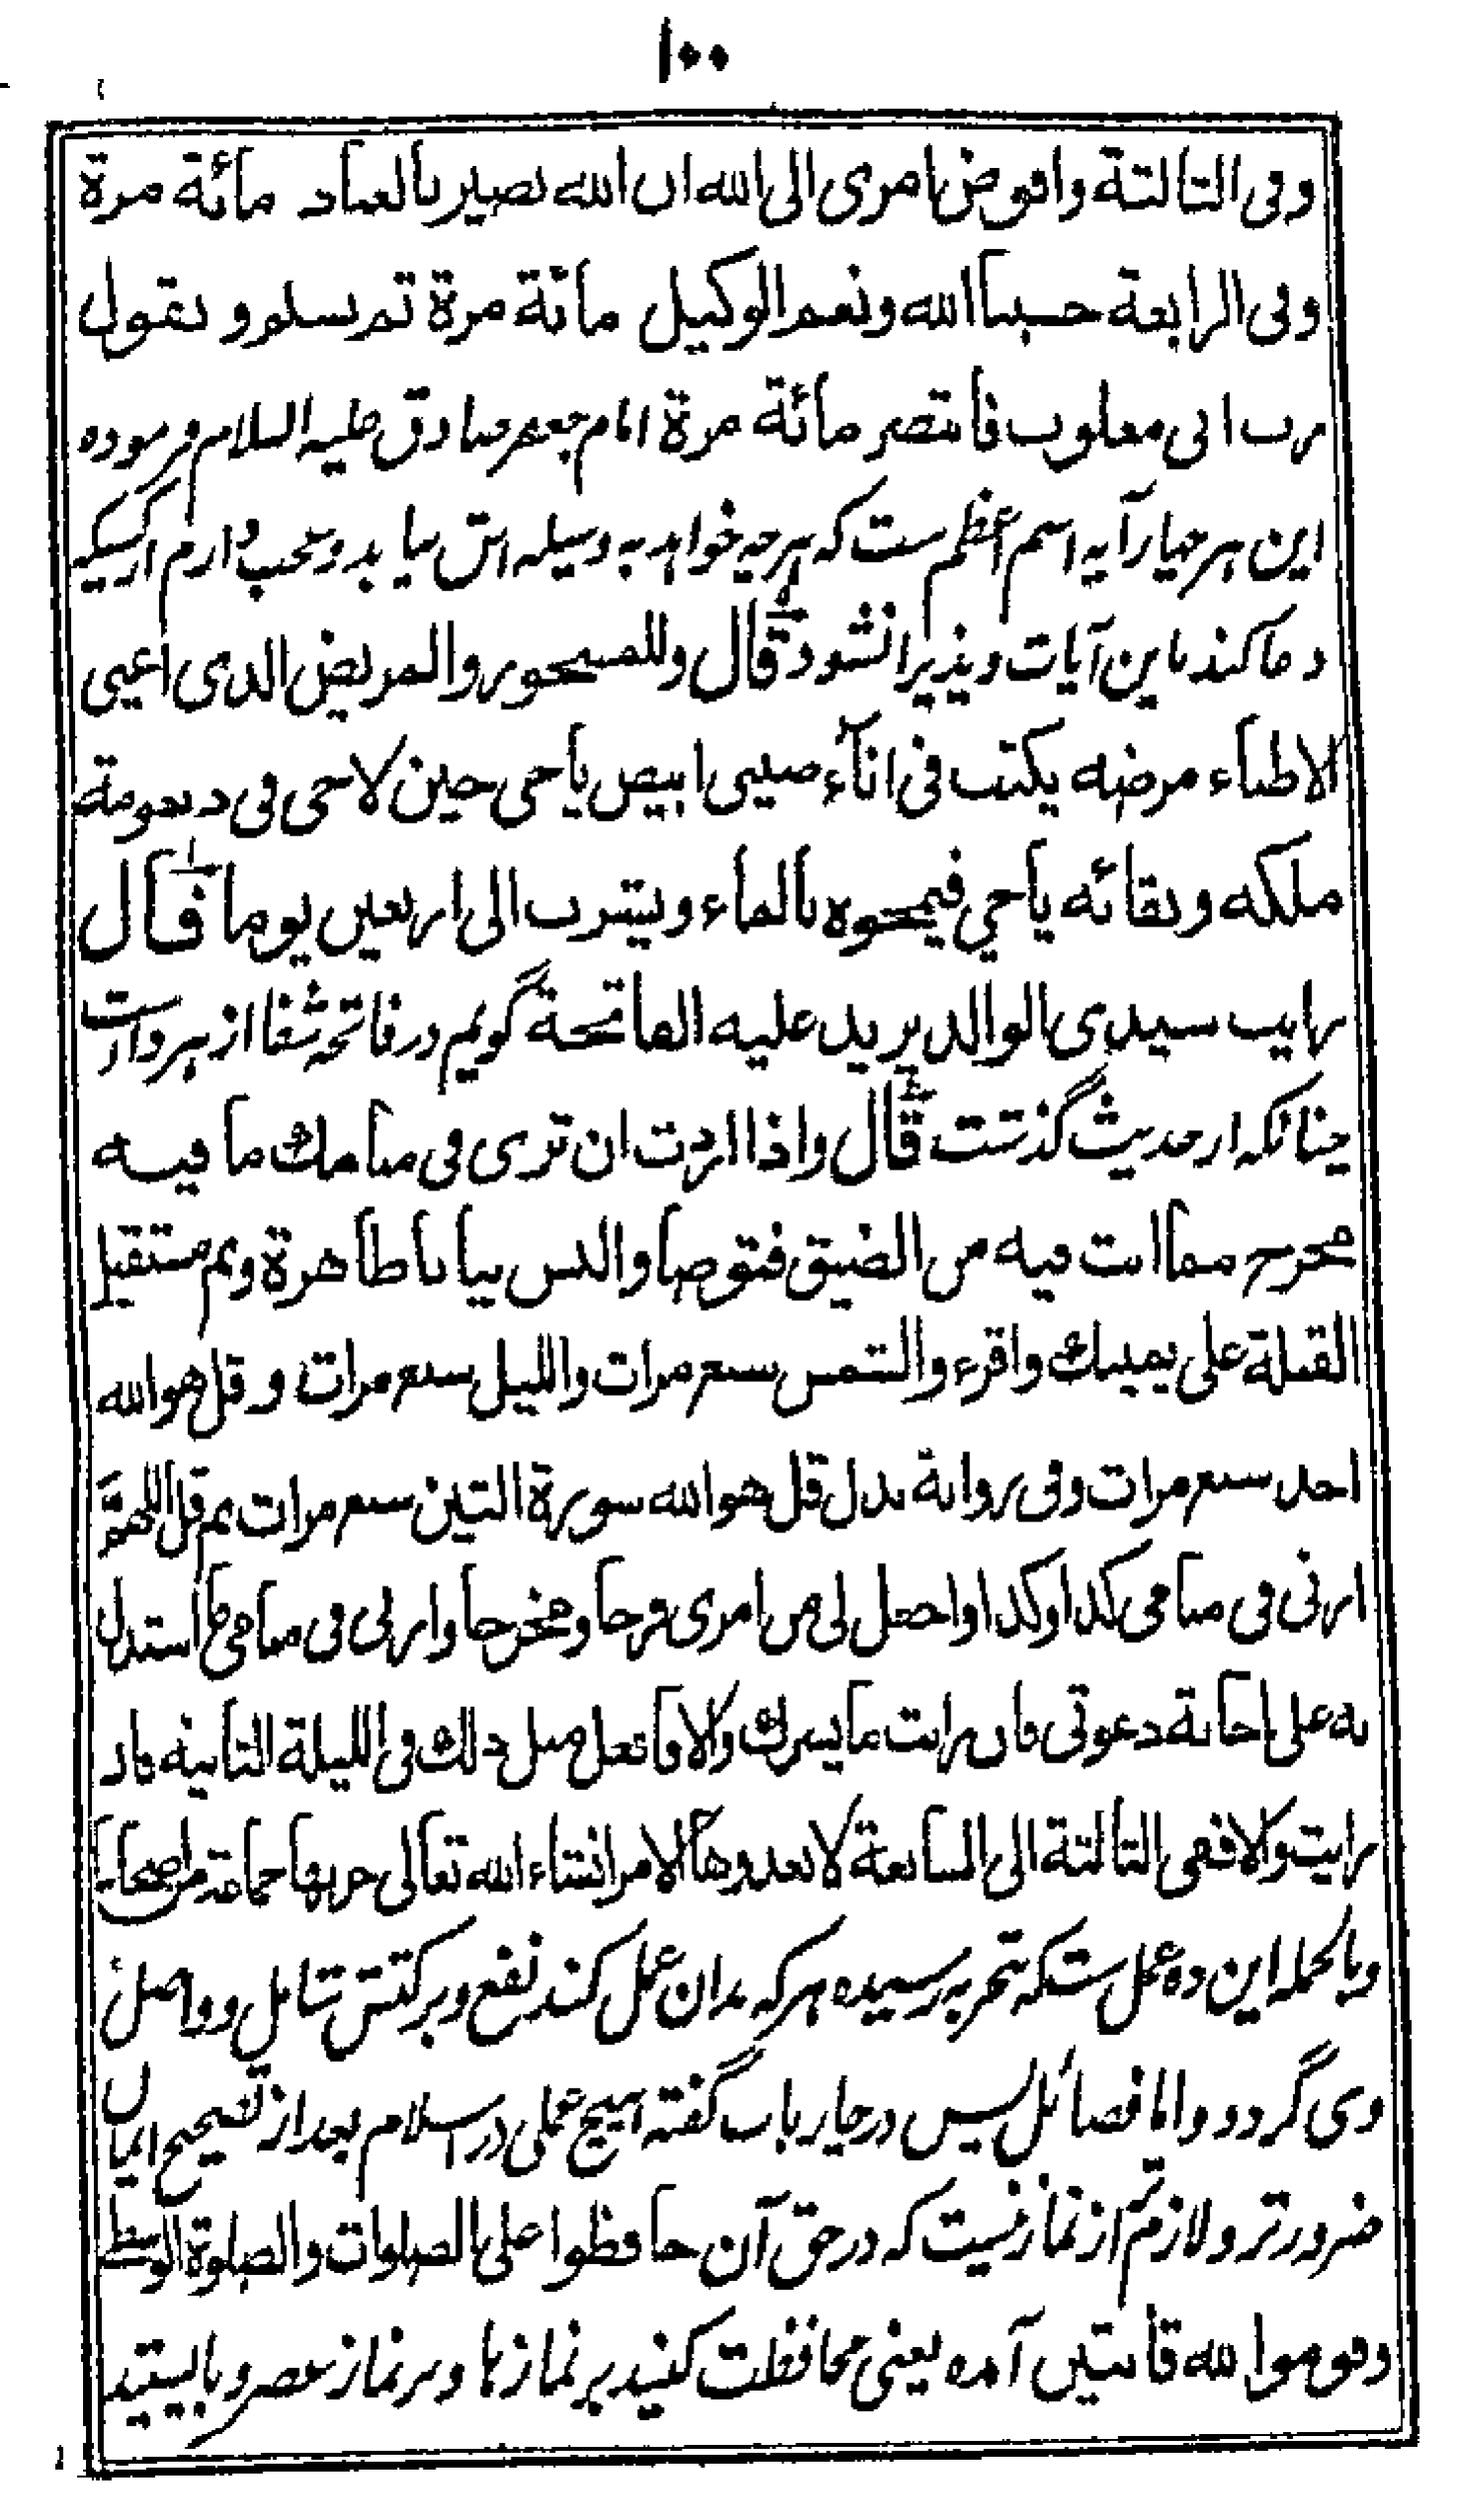 ۱۰۰
وفی الثالثة وافوض امری الی الله ان الله بصیر بالعباد مائة مرة
وفی الرابعة حسبنا الله ونعم الوکیل مائة مرة ثم یسلم و یقول
رب انی مغلوب فانتصر مائة مرة امام جعفر صادق علیه السلام فرموده
این هر چهار آیه اسم اعظم ست که هرچه خواهد به وسیله اش بیابد و عجب دارم از کسیکه
دعا کند باین آیات و پذیرا نشود قال وللمسحور والمریض الذی اعیی
الاطباء مرضه یکتب فی انآء صینی ابیض یا حی حین لا حی فی دیمومة
ملکه وبقائه یا حی فیمحوه بالماء ویشرب الی اربعین یوما قال
رایت سیدی الوالد یزید علیه الفاتحة گویم در فاتحه شفا از هر داءست
چنانکه در حدیث گذشت قال واذا اردت ان تری فی منامک ما فیه
مخرج مما انت فیه من الضیق فتوضا والبس ثیابا طاهرة ونم مستقبل
القبلة علی یمینک واقرء والشمس سبع مرات واللیل سبع مرات وقل هو الله
احد سبع مرات وفی روایة بدل قل هو الله سورة التین سبع مرات ثم قل اللهم
ارنی فی منامی کذا وکذا واجعل لی من امری فرجا ومخرجا وارنی فی منامی ما استدل
به علی اجابة دعوتی فان رایت ما یسرک والا فافعل مثل ذلک فی اللیلة الثانیة فان
رایت والا ففی الثالثة الی السابعة لا یعدوها الامر انشاء الله تعالی جربها جماعة من اصحابنا
وبالجمله این ده عمل ست که بتجربه رسیده هر که بدان عمل کند نفع و برکتش شامل و واصل
وی گردد واما فضائل پس در چار باب گفته هیچ عملی در اسلام بعد از تصحیح ایمان
ضرورتر و لازم تر از نماز نیست که در حق آن حافظوا علی الصلوات والصلوة الوسطی
وقوموا لله قانتین آمده یعنی محافظت کنید بر نمازها و بر نماز عصر و بایستید